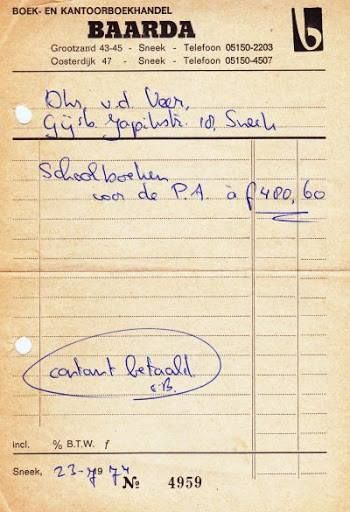 BOEK- EN KANTOORBOEKHANDEL
BAARDA
Grootzand 43-45 - Sneek - Telefoon 05150-2203
Oosterdijk 47 - Sneek - Telefoon 05150-4507
b
Dhr. v.d. Veer,
Gijsb. Japikstr. 18, Sneek
Schoolboeken
voor de P.A. à ƒ 480,60
contant betaald.
incl. % B.T.W. ƒ
Sneek, 23-7 1974
№ 4959